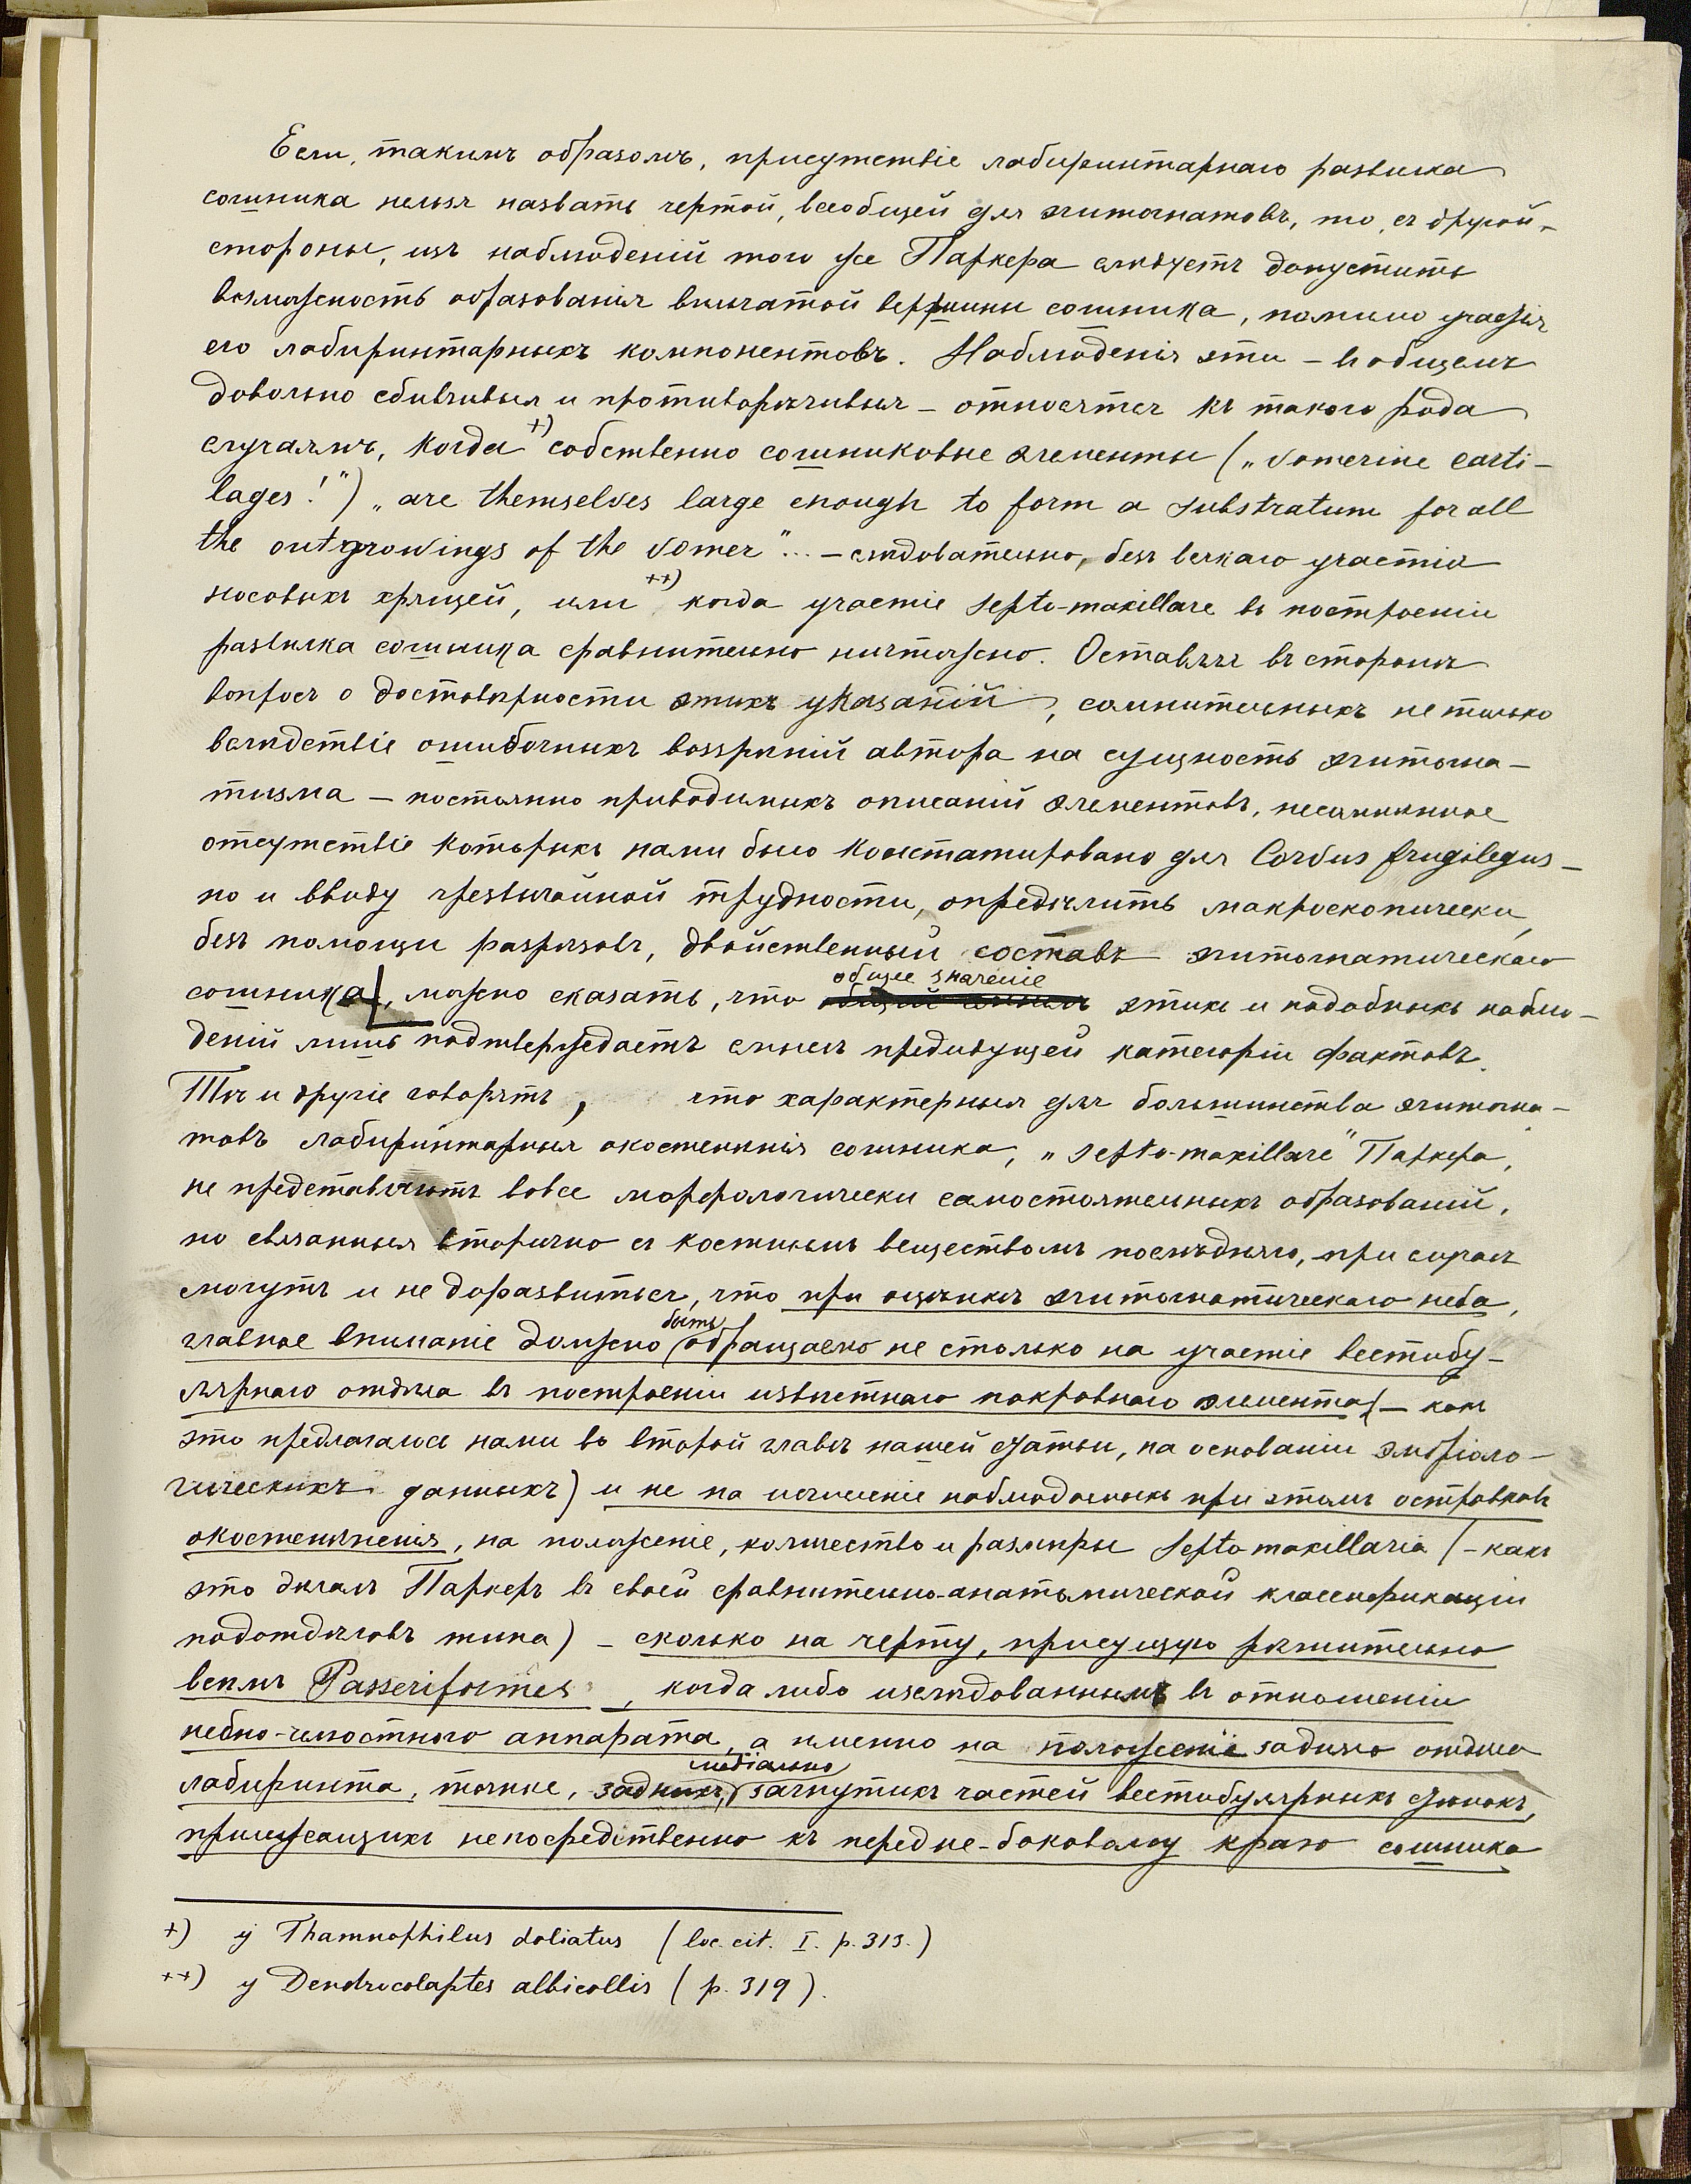 Если, такимъ образомъ, присутствіе лабиринтарнаго развилка
сошника нельзя назвать чертой, всеобщей для эгитогнатовъ, то, съ другой
стороны, изъ наблюденій того же Паркера слѣдуетъ допустить
возможность образованія вильчатой вершины сошника, помимо участія
его лабиринтарныхъ компонентовъ. Наблюденія эти – въ общемъ
довольно сбивчивыя и противорѣчивыя – относятся къ такого рода
случаямъ, когда +) собственно сошниковые элементы („vomerine carti-
lages!") „are themselves large enough to form a substratum for all
the outgrowings of the vomer"... – слѣдовательно, безъ всякаго участія
носовыхъ хрящей, или ++) когда участіе septo-maxillare въ построеніи
развилка сошника сравнительно ничтожно. Оставляя въ сторонѣ
вопросъ о достовѣрности этихъ указаній, сомнительныхъ не только
вслѣдствіе ошибочныхъ воззрѣній автора на сущность эгитогна-
тизма – постоянно приводимыхъ описаній элементовъ, несомнѣнное
отсутствіе которыхъ нами было констатировано для Corvus frugilegus –
но и ввиду чрезвычайной трудности, опредѣлить макроскопически,
безъ помощи разрѣзовъ, двойственный составъ эгитогнатическаго
сошника, можно сказать, что общее значеніе этихъ и подобныхъ наблю-
деній лишь подтверждаетъ смыслъ предидущей категоріи фактовъ.
Тѣ и другіе говорятъ, что характерныя для большинства эгитогна-
товъ лабиринтарныя окостенѣнія сошника, „septo-maxillare" Паркера,
не представляютъ вовсе морфологически самостоятельныхъ образованій,
но связанныя вторично съ костнымъ веществомъ послѣдняго, при случаѣ
могутъ и не доразвиться, что при оцѣнкѣ эгитогнатическаго неба,
главное вниманіе должно быть обращаемо не столько на участіе вестибу-
лярнаго отдѣла въ построеніи извѣстнаго покровнаго элемента (– какъ
это предлагалось нами во второй главѣ нашей статьи, на основаніи эмбріоло-
гическихъ данныхъ) и не на исчисленіе наблюдаемыхъ при этомъ островковъ
окостенѣненія, на положеніе, количество и размѣры septo maxillaria (– какъ
это дѣлалъ Паркеръ въ своей сравнительно-анатомической классификаціи
подотдѣловъ типа) – сколько на черту, присущую рѣшительно
всѣмъ Passeriformes, когда либо изслѣдованнымъ въ отношеніи
небно-челюстного аппарата, а именно на положеніе задняго отдѣла
лабиринта, точнѣе, заднихъ, медіально загнутыхъ частей вестибулярныхъ стѣнокъ,
прилежащихъ непосредственно къ передне-боковому краю сошника
+) у Thamnophilus doliatus (loc. cit. I. p. 313.)
++) у Dendrocolaptes albicollis (p. 319).